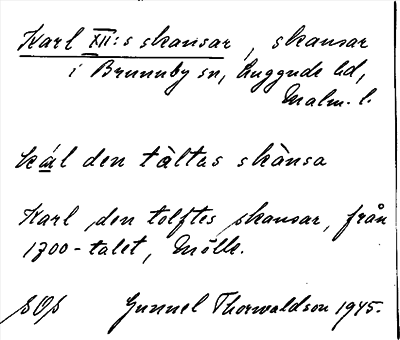 Karl XII:s skansar, skansar
i Brunnby sn, Luggude hd,
Malm. l.
kál den tàltas skànsa
Karl den tolftes skansar, från
1700-talet, Mölle.
SOS Gunnel Thorwaldson 1945.